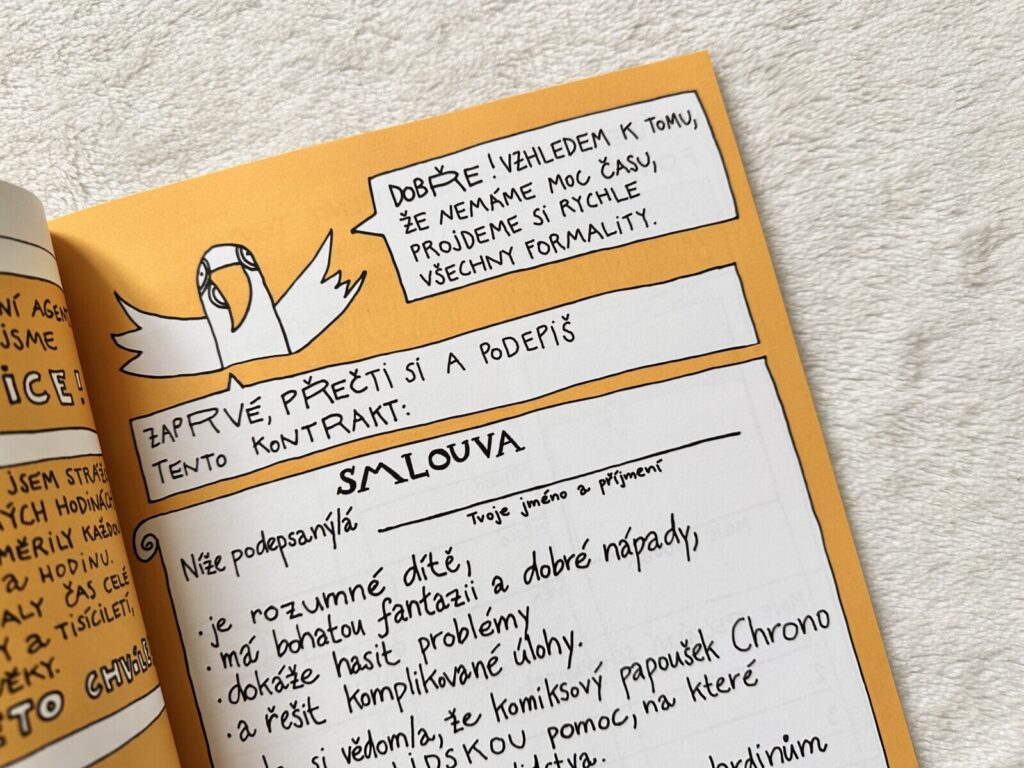 NÍ AGENT
JSME
ICE!
JSEM STRÁŽC
NÝCH HODINÁCH
MĚŘILY KAŽDOU
a HODINU.
ALY ČAS CELÉ
Y a TISÍCILETÍ,
VĚKY.
ETO CHVÍLE
DOBŘE! VZHLEDEM K TOMU,
ŽE NEMÁME MOC ČASU,
PROJDEME SI RYCHLE
VŠECHNY FORMALITY.
ZAPRVÉ, PŘEČTI SI A PODEPIŠ
TENTO KONTRAKT:
SMLOUVA
Níže podepsaný/á
Tvoje jméno a příjmení
· je rozumné dítě,
· má bohatou fantazii a dobré nápady,
· dokáže hasit problémy
· a řešit komplikované úlohy.
si vědom/a, že komiksový papoušek Chrono
LIDSKOU pomoc, na které
lidstva.
hrdinům